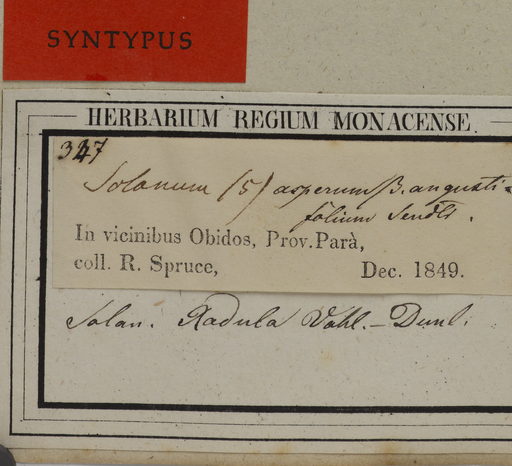 SYNTYPUS
HERBARIUM REGIUM MONACENSE.
347
Solanum (5) asperum β. angusti=
folium Sendt.
In vicinibus Obidos, Prov. Parà,
coll. R. Spruce, Dec. 1849.
Solan. Radula Vahl. – Dunl.